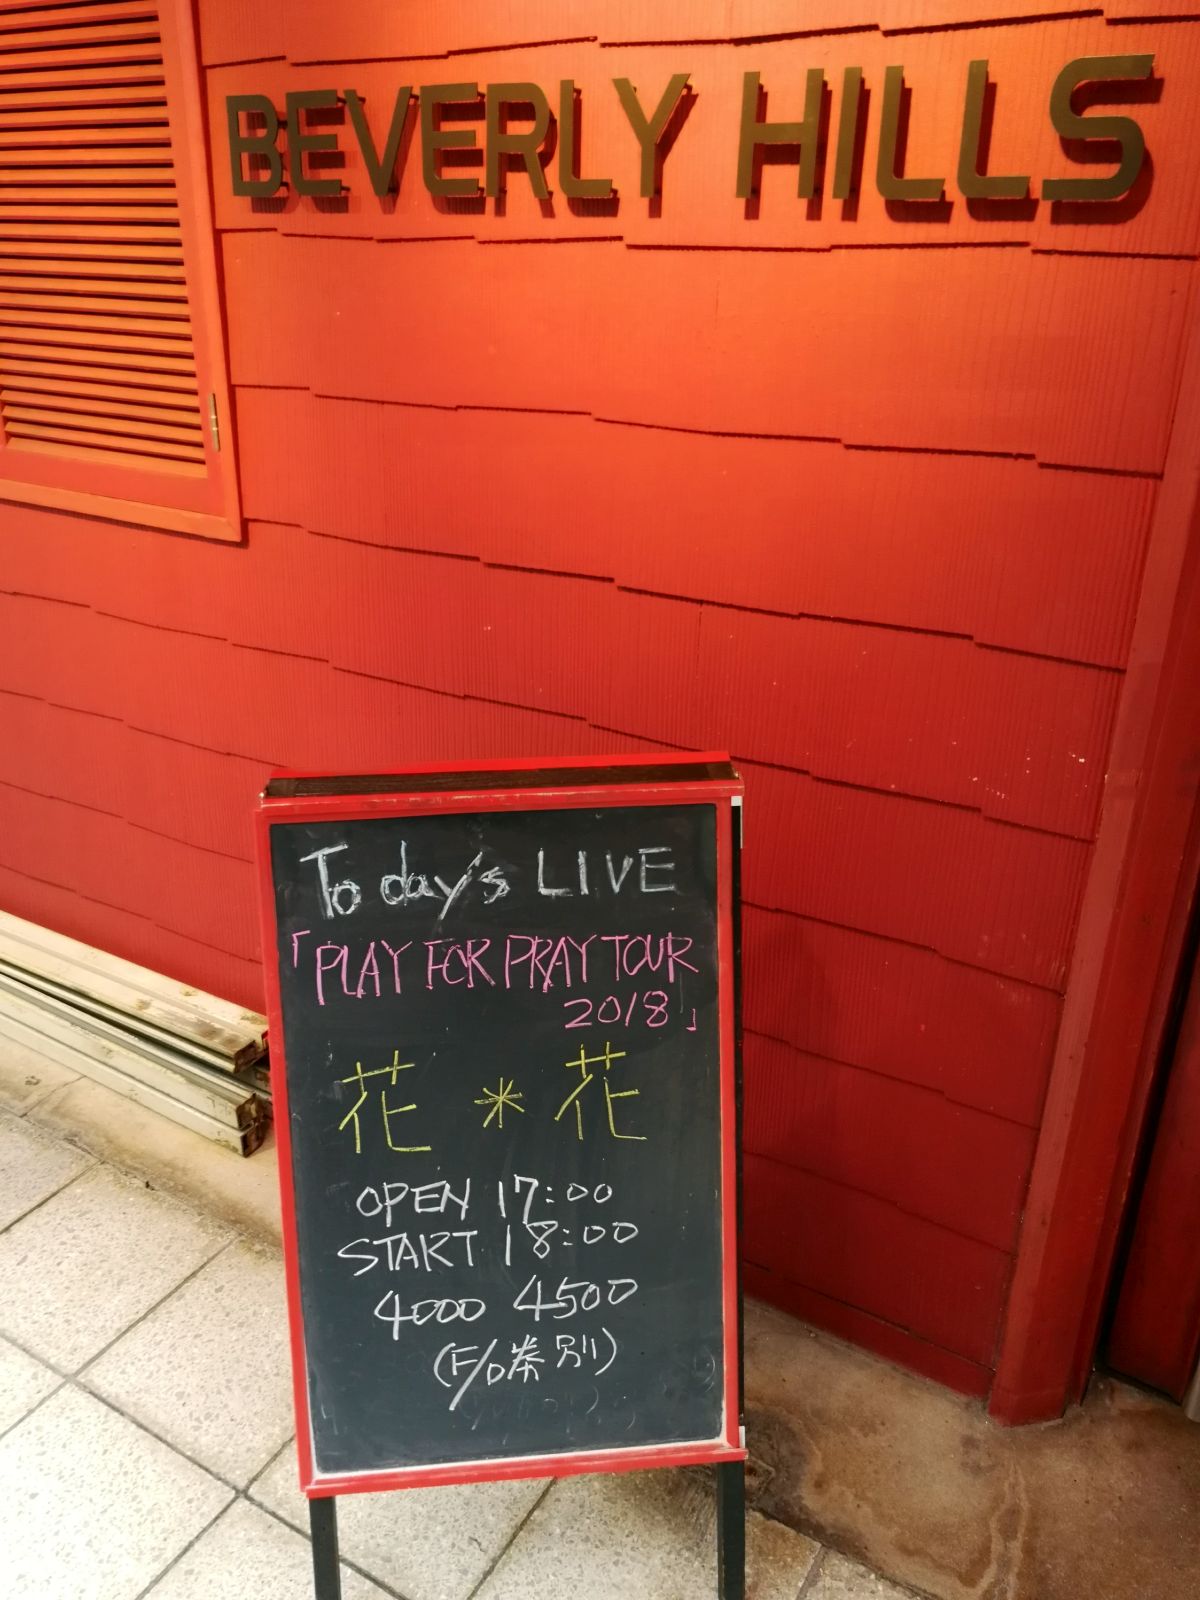 BEVERLY HILLS
Today's LIVE
「PLAY FOR PRAY TOUR
2018」
花*花
OPEN 17:00
START 18:00
4000 4500
(F/D 別)